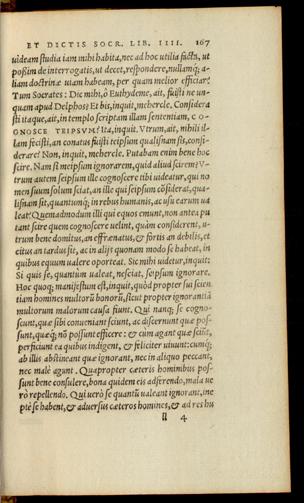 ET DICTIS SOCR. LIB. IIII. 167
uideam studia iam mihi habita, nec ad hoc utilia facta, ut
possim de interrogatis, ut decet, respondere, nullamq; a-
liam doctrinæ uiam habeam, per quam melior efficiar?
Tum Socrates: Dic mihi, ô Euthydeme, ait, fuisti ne un-
quam apud Delphos? Et bis, inquit, mehercle. Considera
sti itaque, ait, in templo scriptam illam sententiam, CO-
GNOSCE TEIPSVM? Ita, inquit. Vtrum, ait, nihili il-
lam fecisti, an conatus fuisti teipsum qualisnam sis, consi-
derare? Non, inquit, mehercle. Putabam enim bene hoc
scire. Nam si meipsum ignorarem, quid aliud scirem? V-
trum autem seipsum ille cognoscere tibi uidetur, qui no
men suum solum sciat, an ille qui seipsum cōsiderat, qua-
lisnam sit, quantumq; in rebus humanis, ac usu earum ua
leat? Quemadmodum illi qui equos emunt, non antea pu
tant scire quem cognoscere uelint, quàm considerent, u-
trum bene domitus, an effrænatus, & fortis an debilis, et
citus an tardus sit, ac in alijs quonam modo se habeat, in
quibus equum ualere oporteat. Sic mihi uidetur, inquit:
Si quis se, quantùm ualeat, nesciat, seipsum ignorare.
Hoc quoq; manifestum est, inquit, quòd propter sui scien
tiam homines multorũ bonorũ, sicut propter ignorantiā
multorum malorum causa fiunt. Qui nanq; se cogno-
scunt, quæ sibi conueniant sciunt, ac discernunt quæ pos-
sunt, quæq; nō possunt efficere: & cum agant quæ sciūt,
perficiunt ea quibus indigent, & feliciter uiuunt: cumq;
ab illis abstineant quæ ignorant, nec in aliquo peccant,
nec malè agunt. Quapropter cæteris hominibus pos-
sunt bene consulere, bona quidem eis adferendo, mala ue
rò repellendo. Qui uerò se quantũ ualeant ignorant, ine
ptè se habent, & aduersus cæteros homines, & ad res hu
ll 4